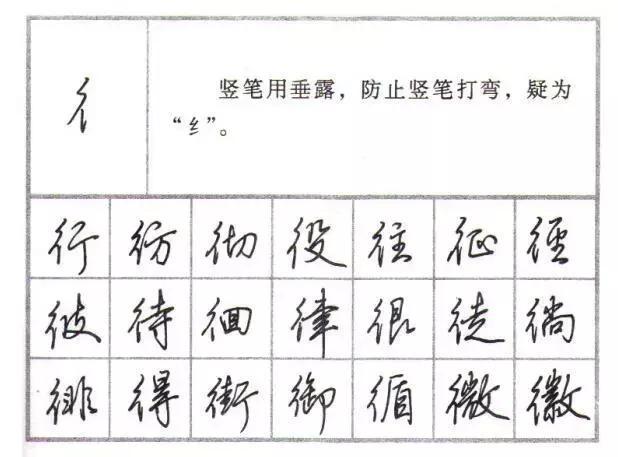 彳
竖笔用垂露，防止竖笔打弯，疑为
“纟”。
行 彷 彻 役 往 征 径
彼 待 徊 律 很 徒 徜
徘 得 街 御 循 微 徽